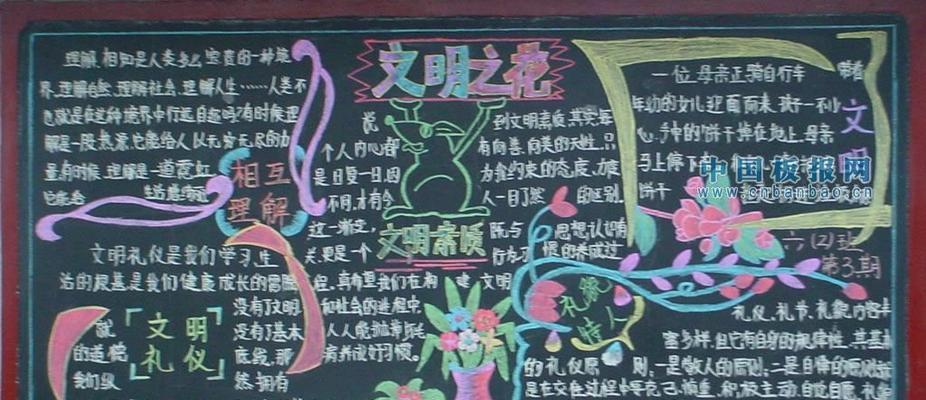 文明之花
理解、相知是人类多么宝贵的一种境
界,理解自然、理解社会、理解人生……人类不
也就是在这种境界中行远自迩吗?有时候理
解是一股热泉,它能给人以无穷无尽的力
量,有时候,理解是一道霓虹,
它能给 生活感
相互
理解
说
个人内心都
是日复一日因
不同,才有今
这一
关,更是一个
到文明素质,其实每
有向善、向美的天性,只
为
人一目了然 的区别。
既与 思想认识有
行为习 惯的养成过
文明素质
一位母亲正骑自行车 带着
年幼的女儿迎面而来,孩子一不小
心,手中的饼干掉在地上,母亲
马上停下
饼干
文
明
中国板报网
www.cnbanbao.cn
六(2)班
第3期
文明礼仪是我们学习、生
活的根基,是我们健康成长的臂膀
没有了文明,
没有了基本
底线,那
然,拥有
就
的道德
我们级
文明
礼仪
程,真希望我们在构 建 文明
和社会的进程中,
人人能抛弃
病养成好习惯。
礼貌
待人
礼仪、礼节、礼貌内容丰
富多样,但它有自身的规律性,其基本
的礼仪原 则:一是敬人的原则;二是自律的原则,就
是在交往过程中要克己、慎重、积极主动、自觉自愿、礼貌